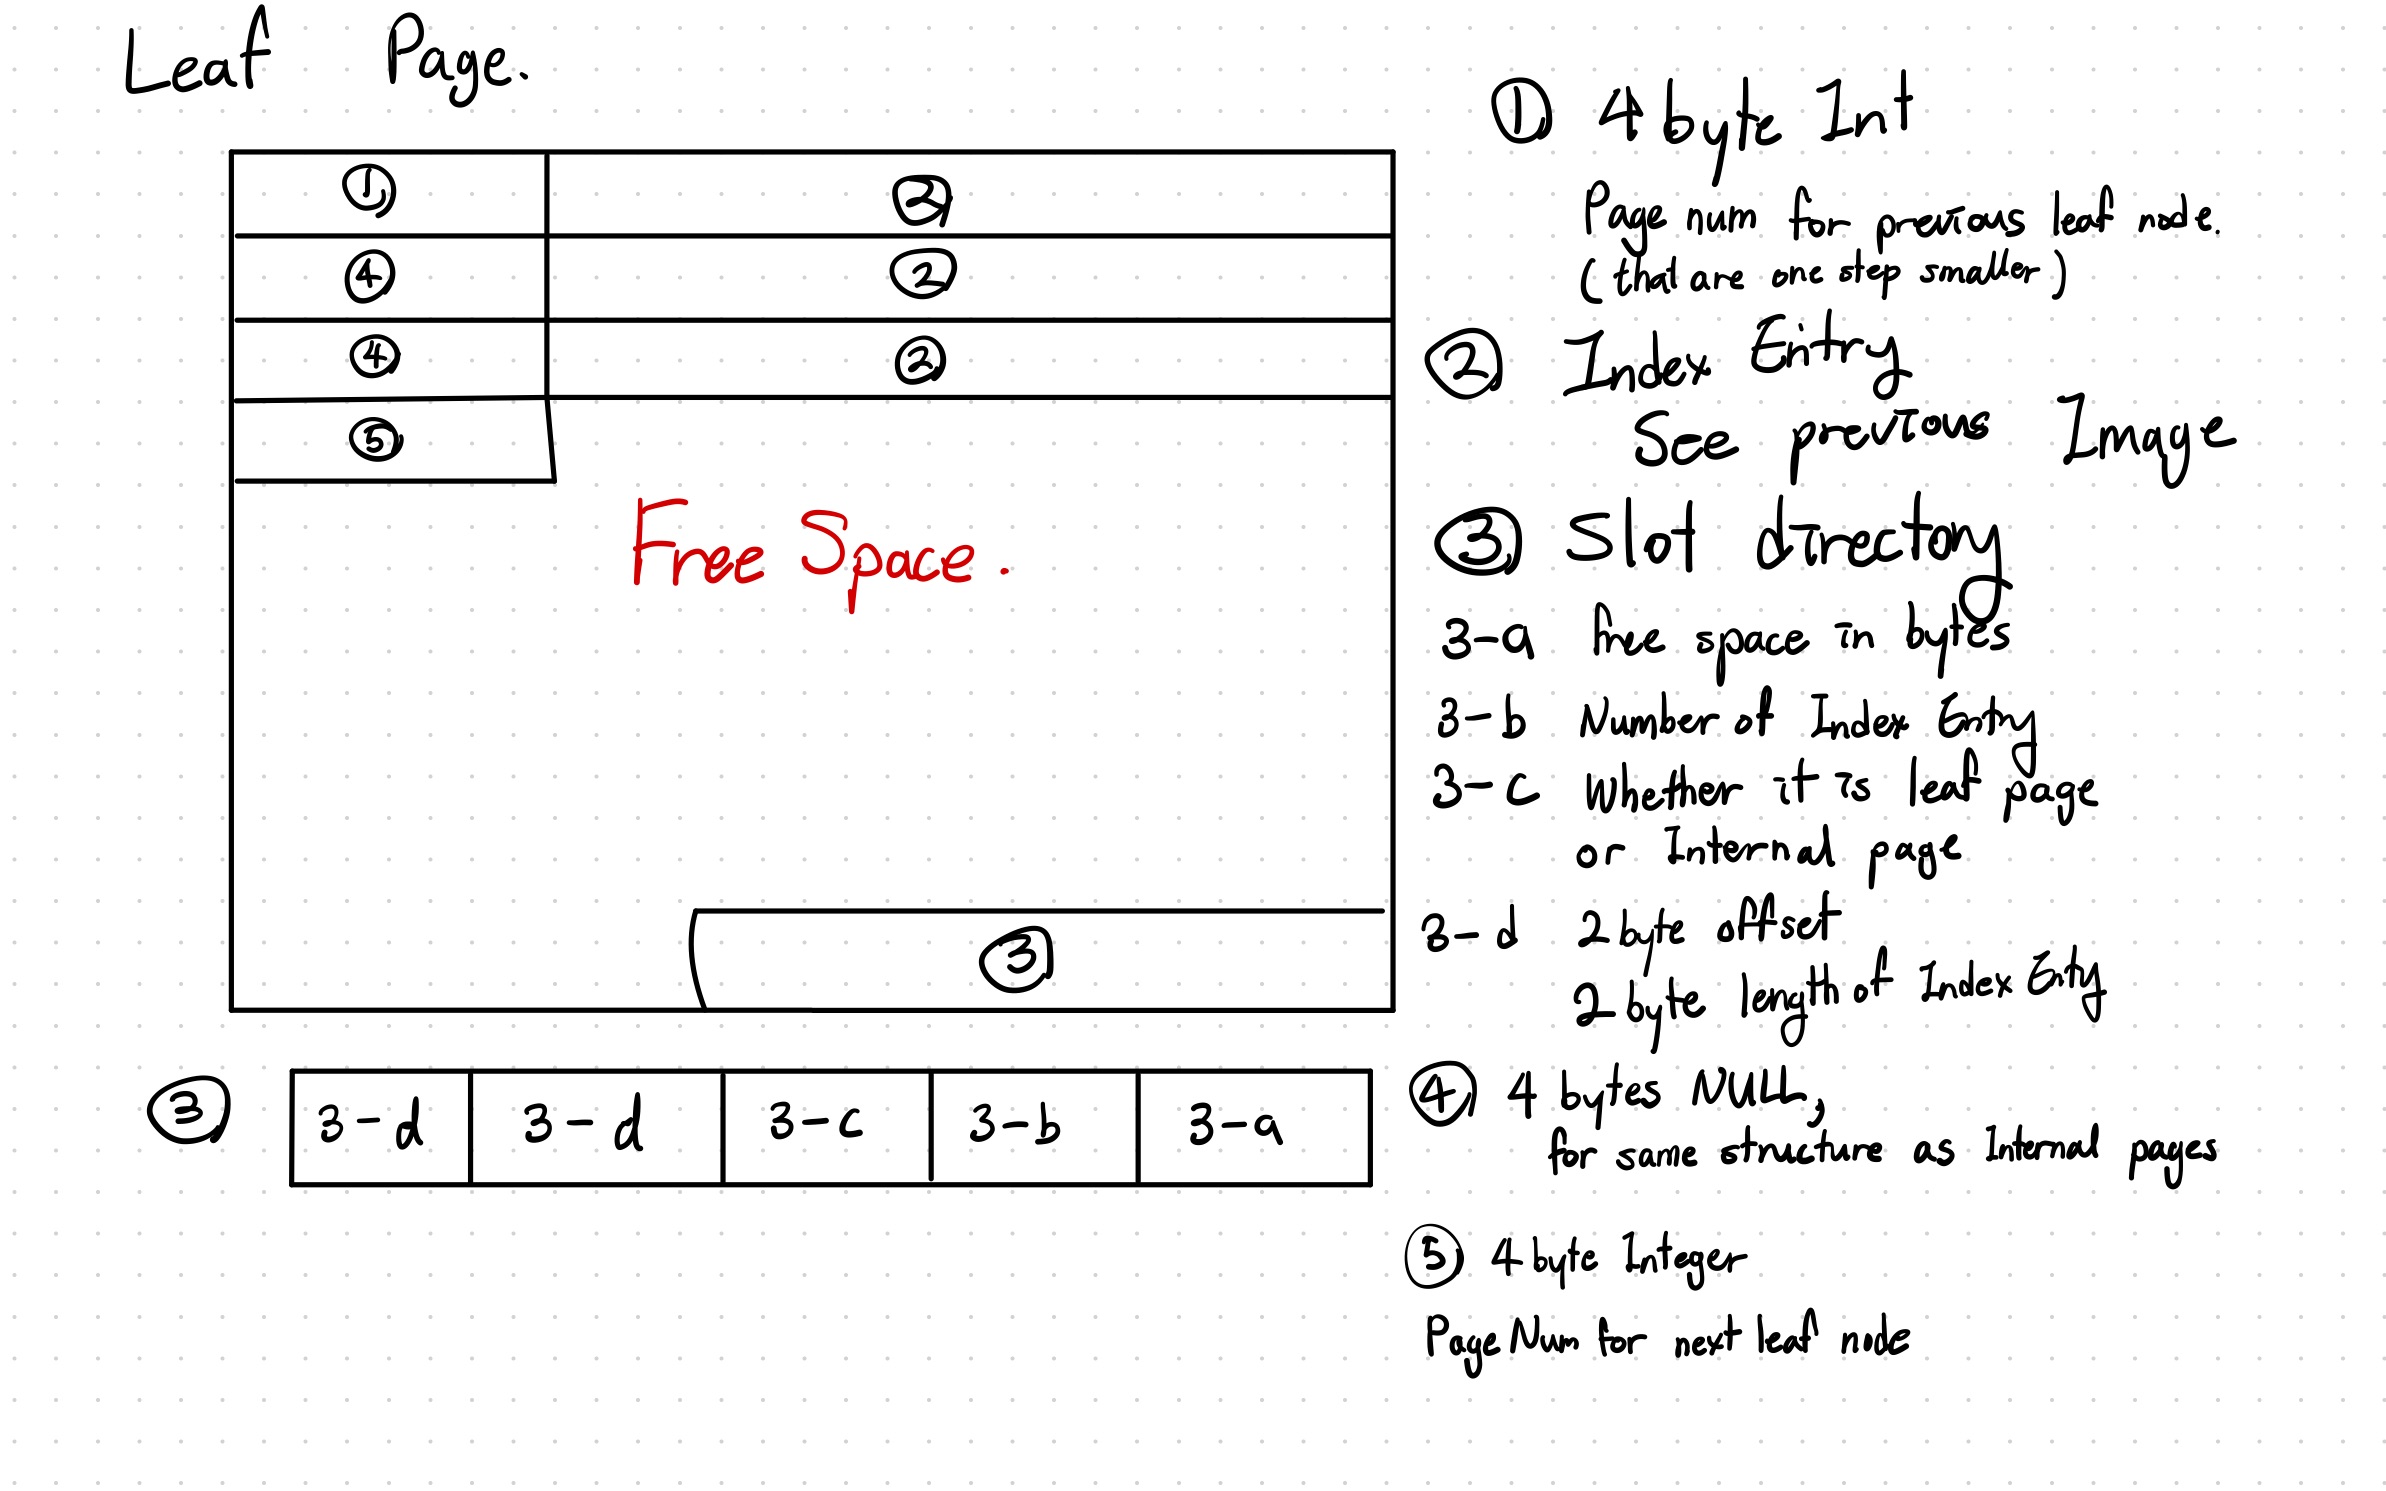 Leaf Page.
① ②
④ ②
④ ②
⑤
Free Space.
③
③ 3-d 3-d 3-c 3-b 3-a
① 4 byte Int
Page num for previous leaf node.
(that are one step smaller)
② Index Entry
See previous Image
③ Slot directory
3-a free space in bytes
3-b Number of Index Entry
3-c Whether it is leaf page
or Internal page
3-d 2 byte offset
2 byte length of Index Enty
④ 4 bytes NULL,
for same structure as Internal pages
⑤ 4 byte Integer
Page Num for next leaf node